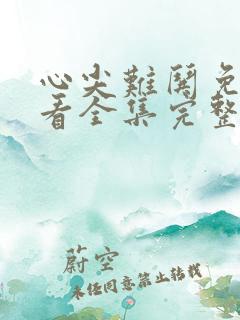 心尖難鬨免
看全集完整
蔚空
未经同意禁止转载